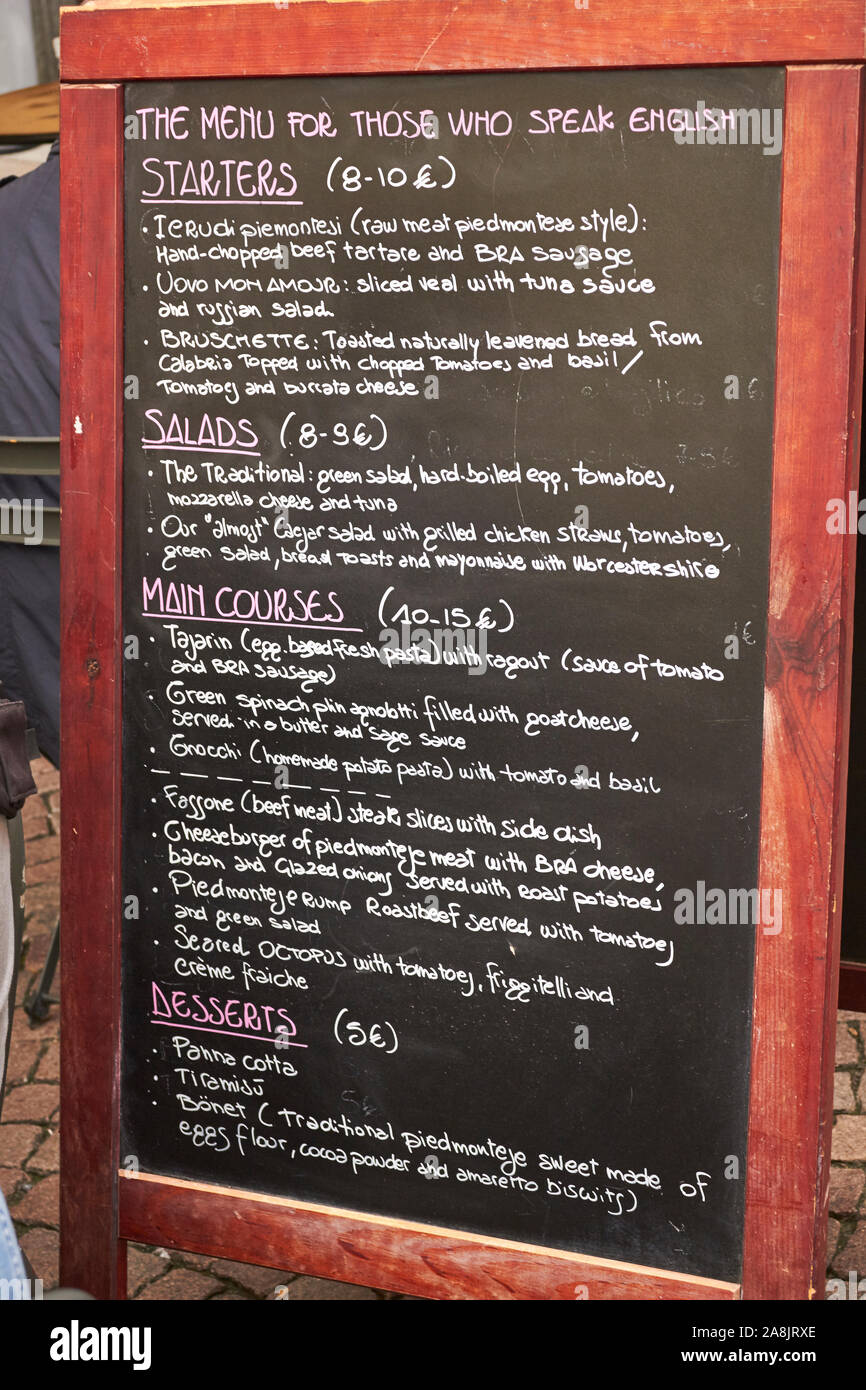 THE MENU FOR THOSE WHO SPEAK ENGLISH
STARTERS (8-10€)
· I CRUDI piemontesi (raw meat piedmontese style):
Hand-chopped beef tartare and BRA sausage
· UOVO MON AMOUR: sliced veal with tuna sauce
and russian salad
· BRUSCHETTE: Toasted naturally leavened bread from
Calabria Topped with chopped Tomatoes and basil/
Tomatoes and burrata cheese
SALADS (8-9€)
· The Traditional: green salad, hard-boiled egg, tomatoes,
mozzarella cheese and tuna
· Our "almost" Caesar salad with grilled chicken straws, tomatoes,
green salad, bread toasts and mayonnaise with Worcestershire
MAIN COURSES (10-15€)
· Tajarin (egg based fresh pasta) with ragout (sauce of tomato
and BRA sausage)
· Green spinach plin agnolotti filled with goat cheese,
served in a butter and sage sauce
· Gnocchi (homemade potato pasta) with tomato and basil
· Fassone (beef meat) steak slices with side dish
· Cheeseburger of piedmontese meat with BRA cheese,
bacon and Glazed onions served with roast potatoes
· Piedmontese Rump Roastbeef served with tomatoes
and green salad
· Seared OCTOPUS with tomatoes, friggitelli and
crème fraiche
DESSERTS (5€)
· Panna cotta
· Tiramisù
· Bönet (Traditional piedmontese sweet made of
eggs flour, cocoa powder and amaretto biscuits)
alamy
Image ID: 2A8JRXE
www.alamy.com